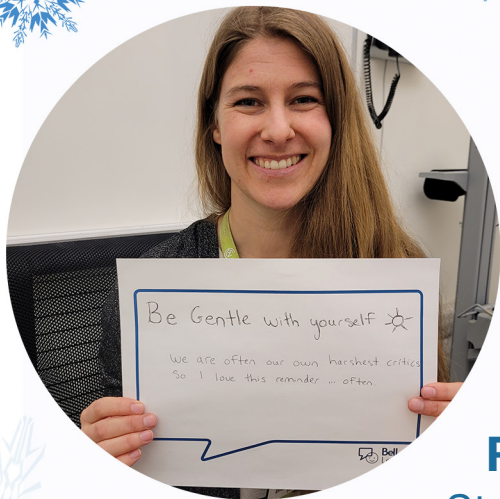 Be Gentle with yourself
We are often our own harshest critics
So I love this reminder ... often.
Bell